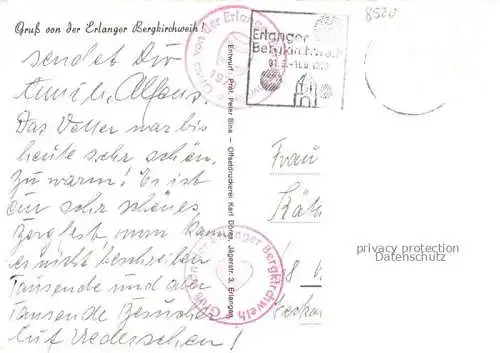 Gruß von der Erlanger Bergkirchweih!
sendet Dir
Familie Alfons.
Das Wetter war bis
heute sehr schön.
Zu warm! Es ist
ein sehr schönes
Bergfest man kann
es nicht beschreiben
Tausende und aber
Tausende Besucher
Auf Wiedersehen!
Entwurf: Prof. Peter Bina – Offsetdruckerei Karl Döres, Jägerstr. 3, Erlangen
Gruß von der Erlanger Bergkirchweih
Gruß von der Erlanger Bergkirchweih
Erlanger
Bergkirchweih
8520
Frau
Käth
privacy protection
Datenschutz